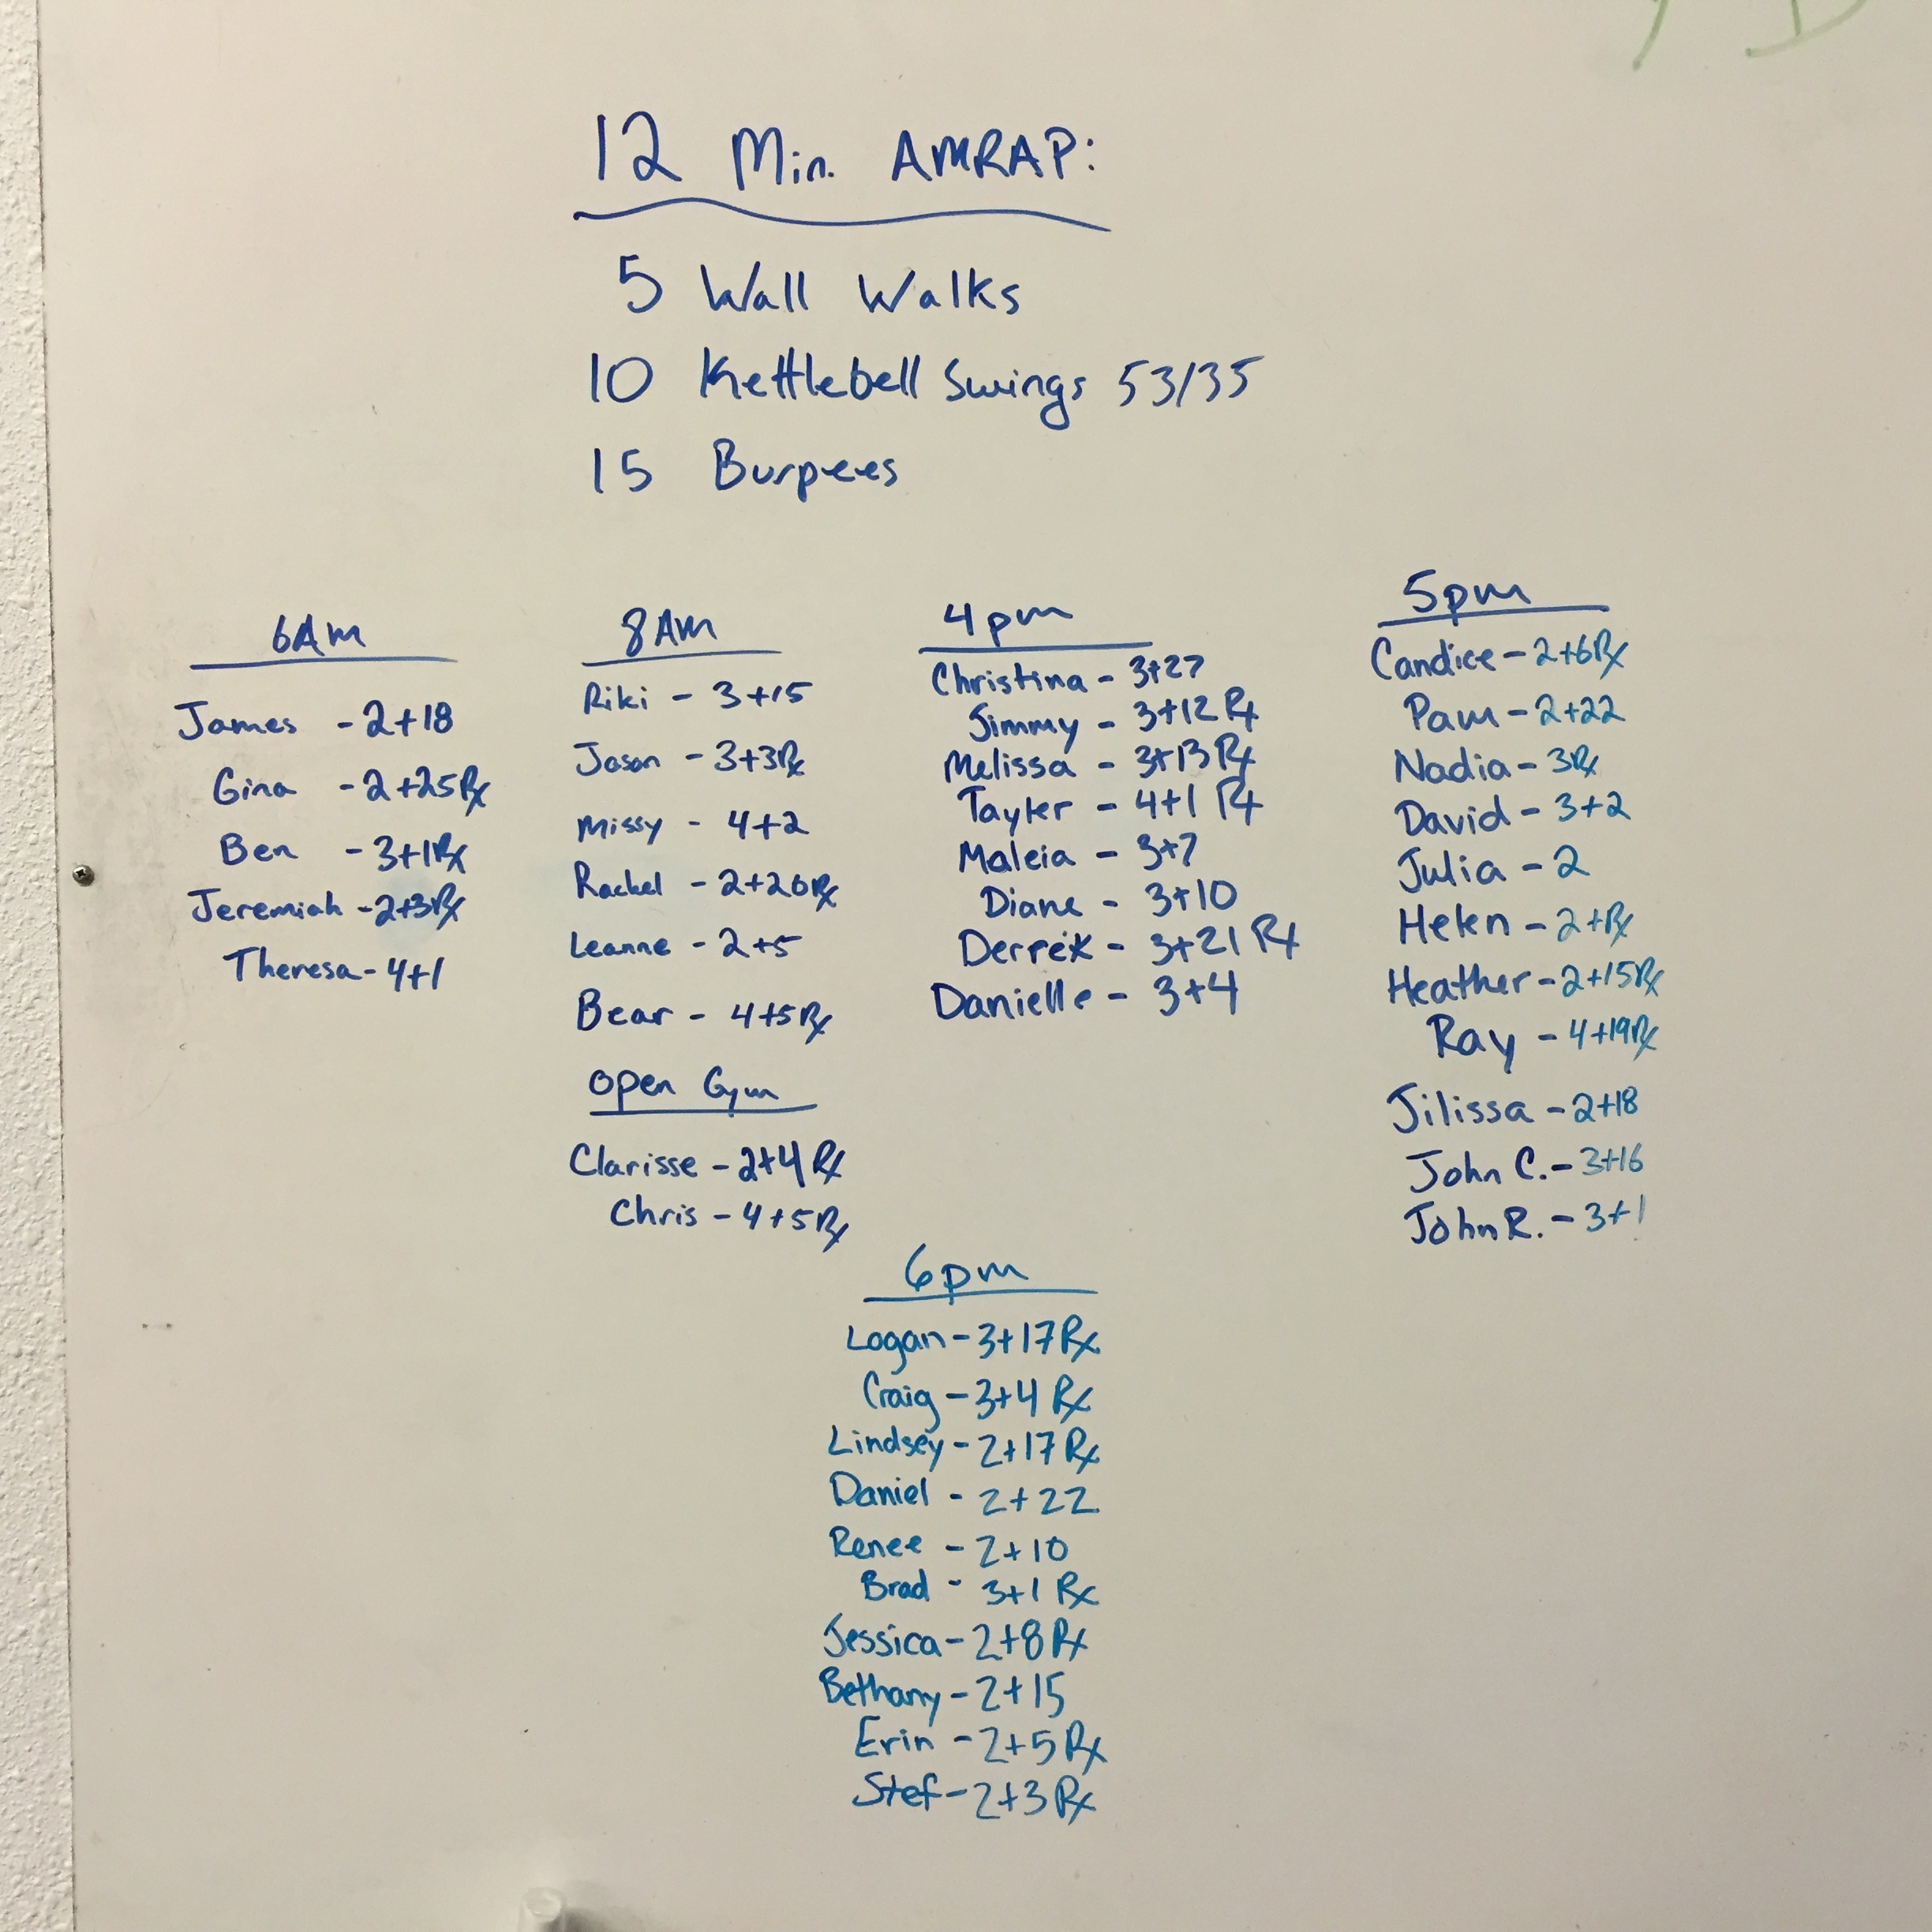 12 Min. AMRAP:
5 Wall Walks
10 Kettlebell Swings 53/35
15 Burpees
6AM
James - 2+18
Gina - 2+25 Rx
Ben - 3+1 Rx
Jeremiah - 2+3 Rx
Theresa - 4+1
8AM
Riki - 3+15
Jason - 3+3 Rx
Missy - 4+2
Rachel - 2+20 Rx
Leanne - 2+5
Bear - 4+5 Rx
Open Gym
Clarisse - 2+4 Rx
Chris - 4+5 Rx
4pm
Christina - 3+27
Jimmy - 3+12 Rx
Melissa - 3+13 Rx
Tayler - 4+1 Rx
Maleia - 3+7
Diane - 3+10
Derrek - 3+21 Rx
Danielle - 3+4
5pm
Candice - 2+6 Rx
Pam - 2+22
Nadia - 3 Rx
David - 3+2
Julia - 2
Helen - 2+Rx
Heather - 2+15 Rx
Ray - 4+19 Rx
Jilissa - 2+18
John C. - 3+16
John R. - 3+1
6pm
Logan - 3+17 Rx
Craig - 3+4 Rx
Lindsey - 2+17 Rx
Daniel - 2+22
Renee - 2+10
Brad - 3+1 Rx
Jessica - 2+8 Rx
Bethany - 2+15
Erin - 2+5 Rx
Stef - 2+3 Rx